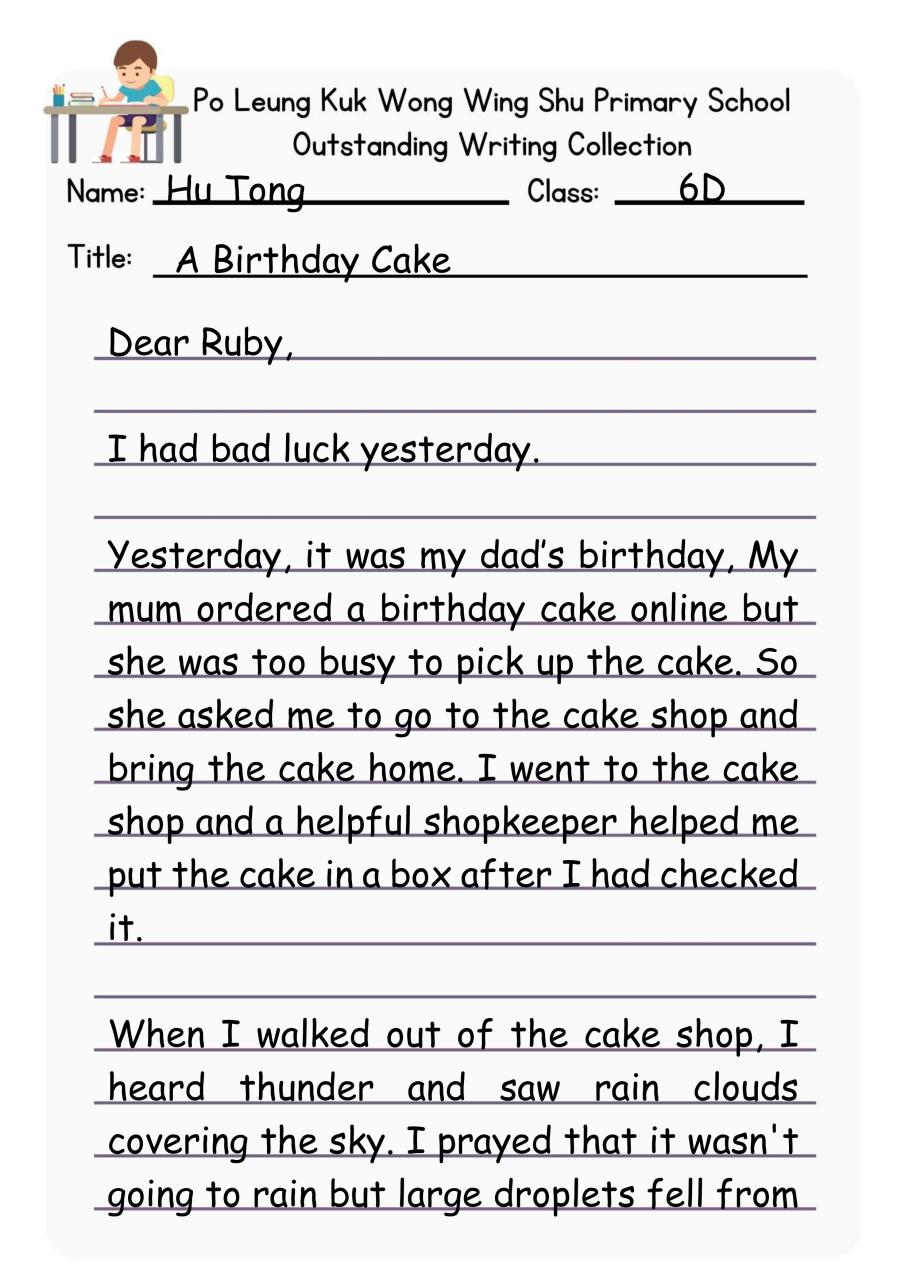 Po Leung Kuk Wong Wing Shu Primary School
Outstanding Writing Collection
Name: Hu Tong Class: 6D
Title: A Birthday Cake
Dear Ruby,
I had bad luck yesterday.
Yesterday, it was my dad’s birthday, My
mum ordered a birthday cake online but
she was too busy to pick up the cake. So
she asked me to go to the cake shop and
bring the cake home. I went to the cake
shop and a helpful shopkeeper helped me
put the cake in a box after I had checked
it.
When I walked out of the cake shop, I
heard thunder and saw rain clouds
covering the sky. I prayed that it wasn't
going to rain but large droplets fell from